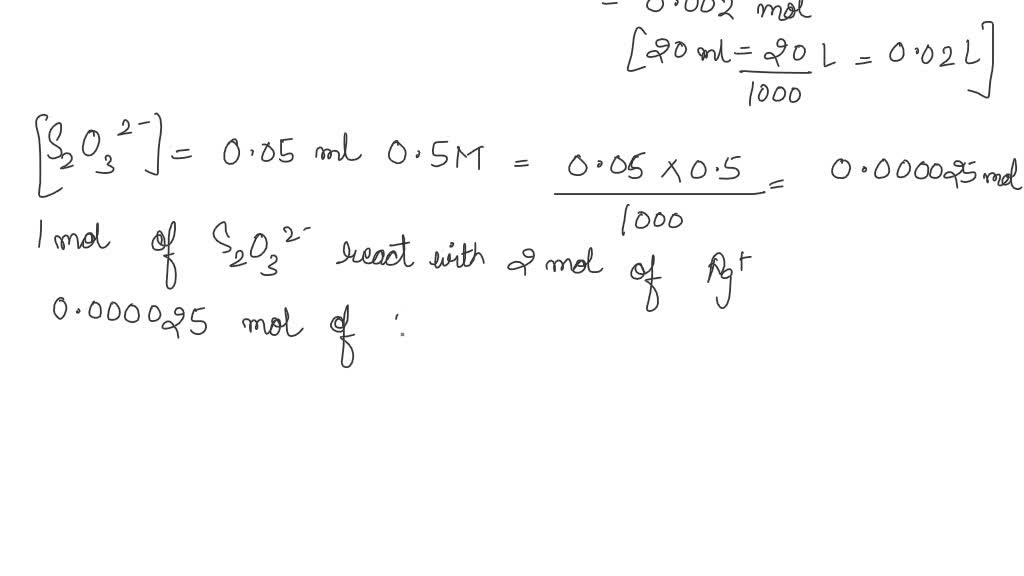 = 0.002 mol
[20 ml = 20/1000 L = 0.02 L]
[S₂O₃²⁻] = 0.05 ml 0.5M = 0.05 × 0.5/1000 = 0.000025 mol
1 mol of S₂O₃²⁻ react with 2 mol of Ag⁺
0.000025 mol of